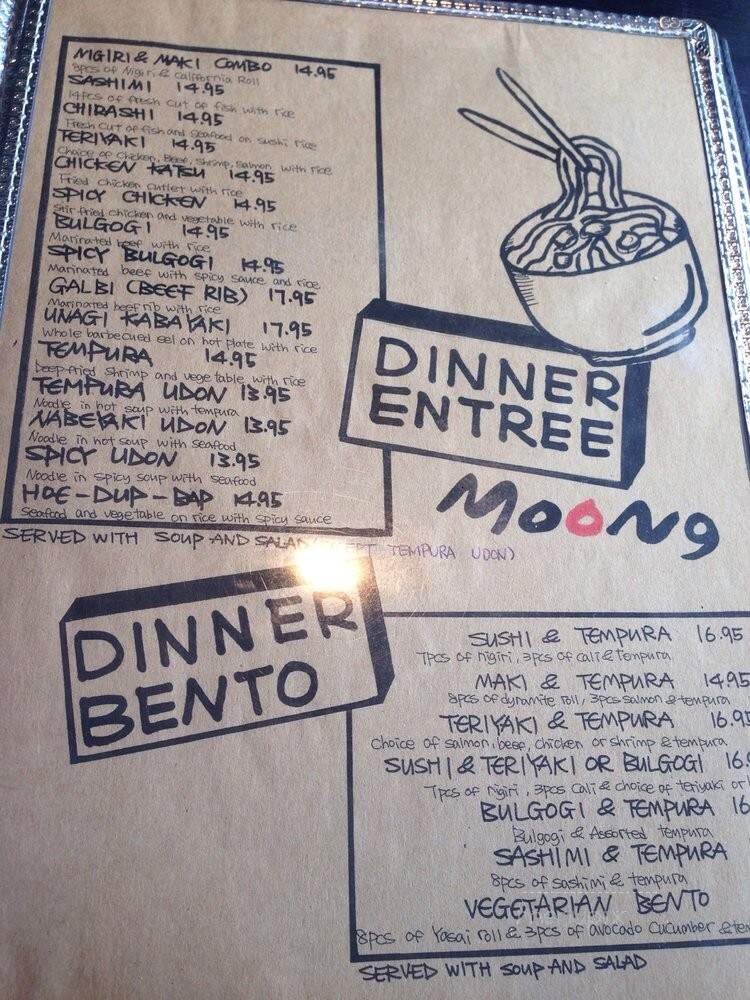 NIGIRI & MAKI COMBO 14.95
8pcs of Nigiri & California Roll
SASHIMI 14.95
14pcs of fresh cut of fish with rice
CHIRASHI 14.95
Fresh cut of fish and seafood on sushi rice
TERIYAKI 14.95
Choice of chicken, Beef, Shrimp, Salmon with rice
CHICKEN KATSU 14.95
Fried chicken cutlet with rice
SPICY CHICKEN 14.95
Stir fried chicken and vegetable with rice
BULGOGI 14.95
Marinated beef with rice
SPICY BULGOGI 14.95
Marinated beef with spicy sauce and rice
GALBI (BEEF RIB) 17.95
Marinated beef rib with rice
UNAGI KABAYAKI 17.95
Whole barbecued eel on hot plate with rice
TEMPURA 14.95
Deep-fried shrimp and vegetable with rice
TEMPURA UDON 13.95
Noodle in hot soup with tempura
NABEYAKI UDON 13.95
Noodle in hot soup with seafood
SPICY UDON 13.95
Noodle in spicy soup with seafood
HOE-DUP-BAP 14.95
Seafood and vegetable on rice with spicy sauce
SERVED WITH SOUP AND SALAD TEMPURA UDON)
DINNER
ENTREE
MOONG
DINNER
BENTO
SUSHI & TEMPURA 16.95
7pcs of nigiri, 3pcs of cali & tempura
MAKI & TEMPURA 14.95
8pcs of dynamite roll, 3pcs salmon & tempura
TERIYAKI & TEMPURA 16.95
Choice of salmon, beef, chicken or shrimp & tempura
SUSHI & TERIYAKI OR BULGOGI 16.
7pcs of nigiri, 3pcs cali & choice of teriyaki or
BULGOGI & TEMPURA 16
Bulgogi & Assorted tempura
SASHIMI & TEMPURA
8pcs of sashimi & tempura
VEGETARIAN BENTO
8pcs of Yasai roll & 3pcs of avocado Cucumber & tem
SERVED WITH SOUP AND SALAD